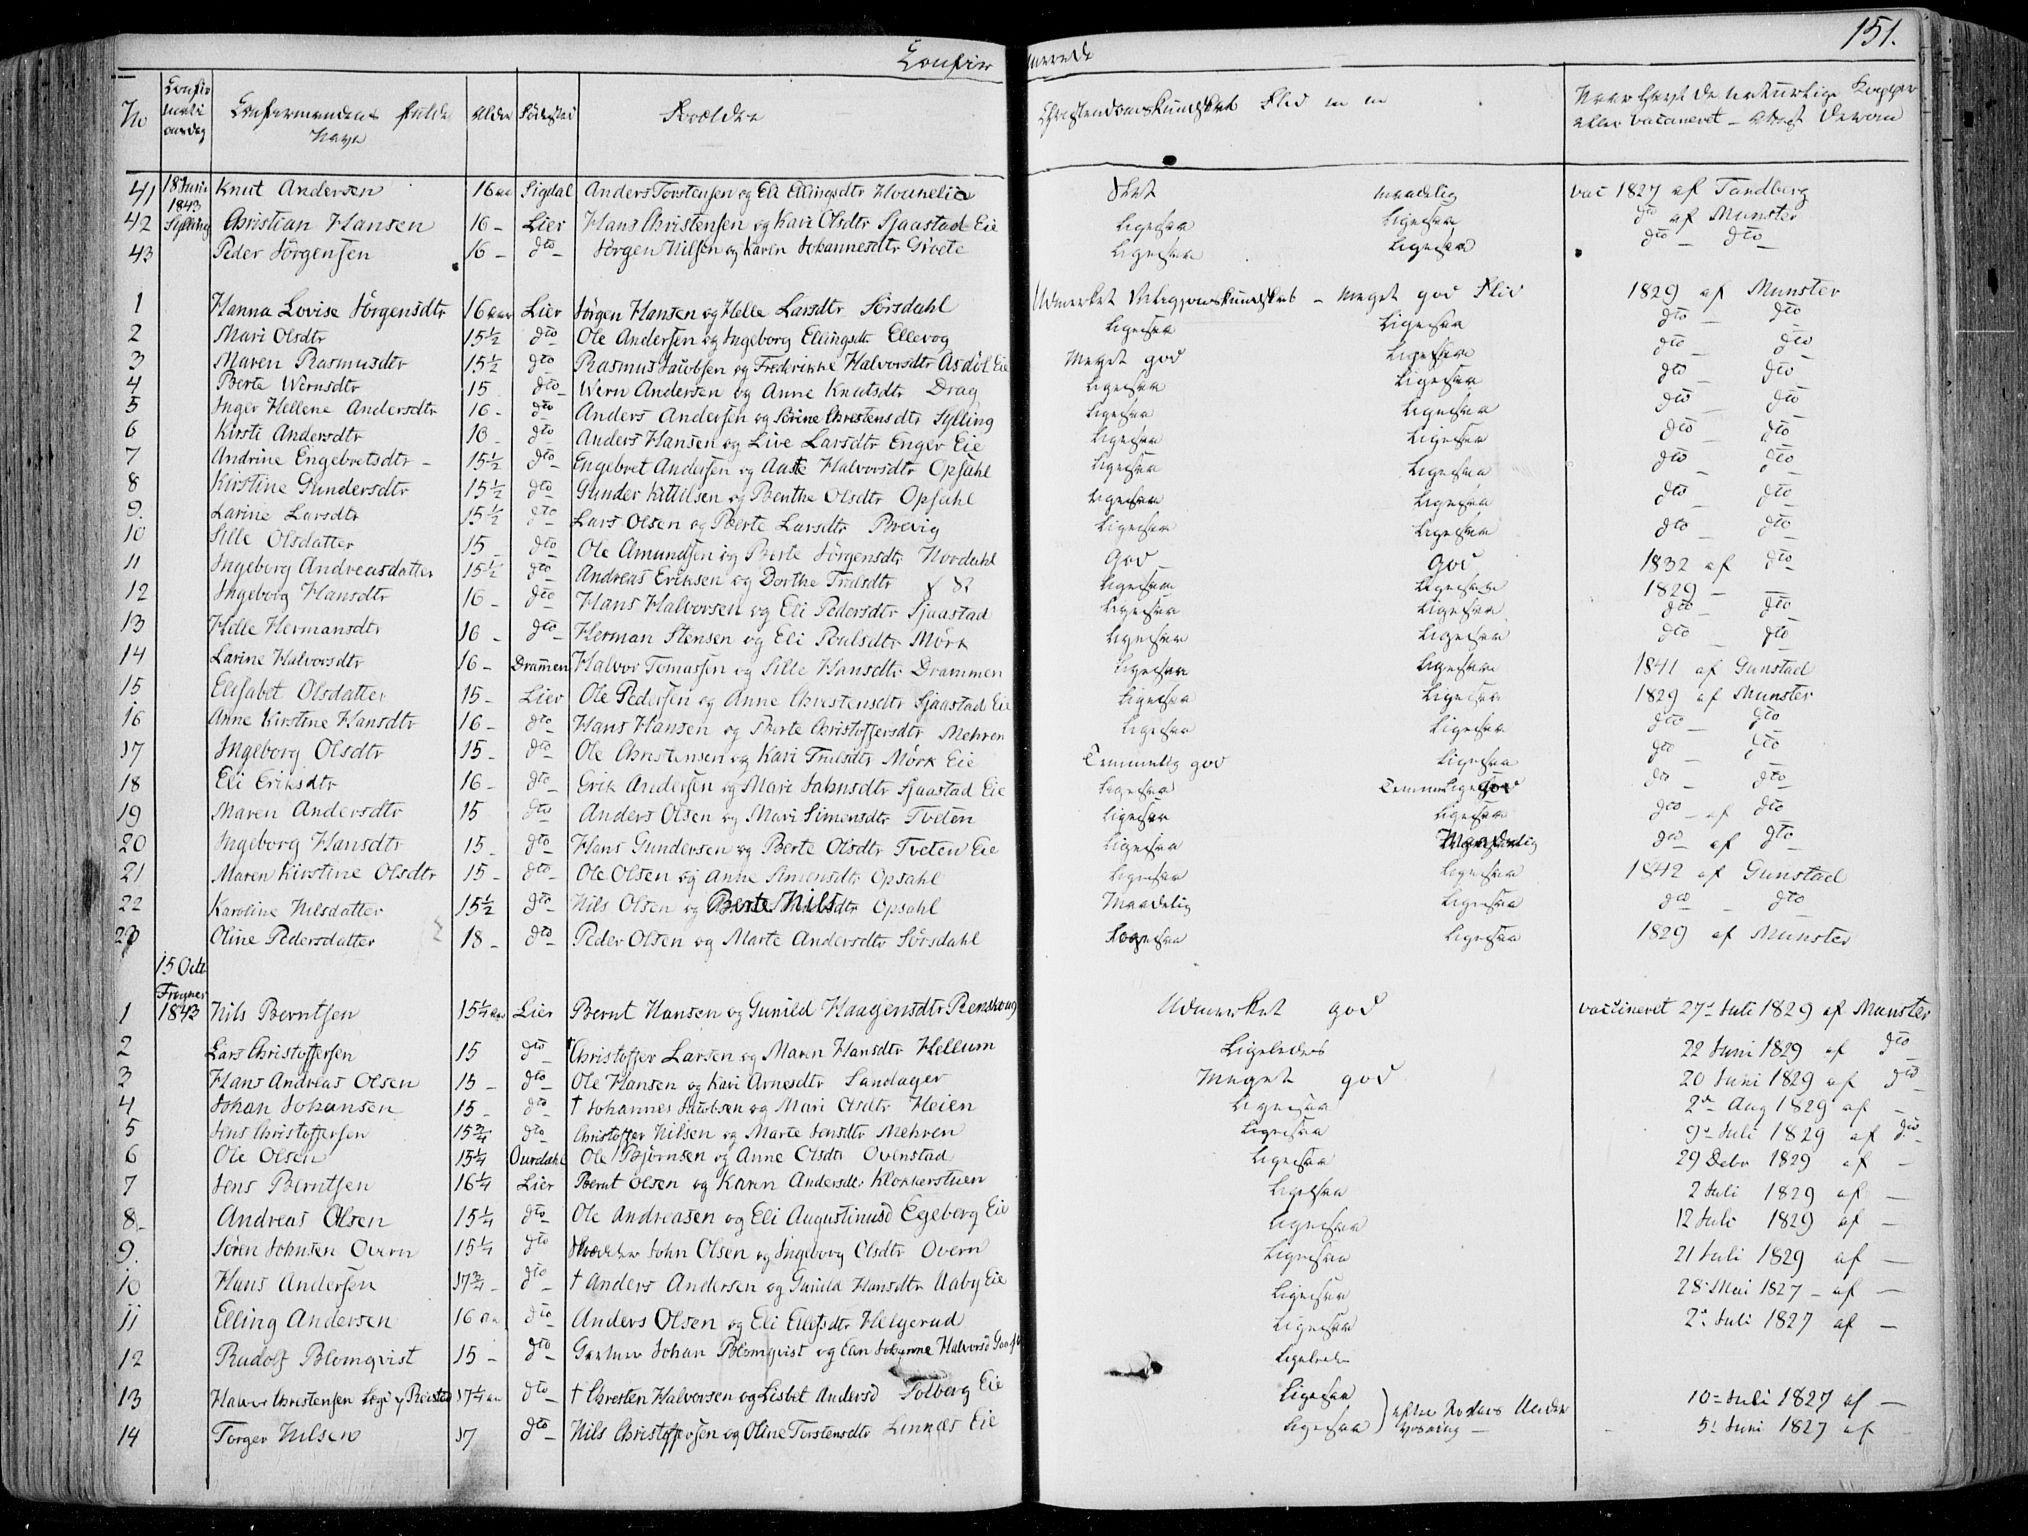 151.
Confir merede
No Confir mati onsdag Confirmandens fulde Navn Alder Fødested Forældre Christendomskundskab Flid m m Naar havt de naturlige Kopper eller vaccineret – Attest derom
41 18 Juni 1843 Knut Andersen 16 aar Sigdal Anders Torstensen og Eli Ellingsdtr slet maadelig vac 1827 af Tandberg
42 Sylling Christian Hansen 16 – Lier Hans Christensen og Kari Olsdtr Sjaastad Eie Ligesaa Ligesaa dto af Munster
43 Peder Jørgensen 16 – dto – Jørgen Nilsen og Karen Johannesdtr Groete Ligesaa Ligesaa dto – dto
1 Hanna Lovise Jørgensdtr 16 aar Lier Jørgen Hansen og Helle Larsdtr Sørsdahl Udmerket Religionskundskab – Meget god Flid 1829 af Munster
2 Mari Olsdtr 15½ dto Ole Andersen og Ingeborg Ellingsdtr Ellevog Ligesaa Ligesaa dto – dto
3 Maren Rasmusdtr 15½ dto Rasmus Jacobsen og Frederikke Halvorsdtr Asdøl Eie Meget god Ligesaa dto – dto
4 Berte Wernsdtr 15 dto – Wern Andersen og Anne Knutsdtr Drag Ligesaa Ligesaa dto – dto
5 Inger Hellene Andersdtr 16 – dto Anders Andersen og Sørine Christensdtr Sylling Ligesaa Ligesaa dto – dto
6 Kirsti Andersdtr 16 – dto – Anders Hansen og Live Larsdtr Enger Eie Ligesaa Ligesaa dto – dto
7 Andrine Engebretsdtr – 15½ dto – Engebret Andersen og Aaste Halvorsdtr Opsahl Ligesaa Ligesaa dto – dto
8 Kirstine Gundersdtr 15½ dto – Gunder Kittilsen og Benthe Olsdtr Opsahl Ligesaa Ligesaa dto – dto
9. Larine Larsdtr 15½ dto – Lars Olsen og Berte Larsdtr Brevig Ligesaa Ligesaa dto – dto
10 Sille Olsdatter 15 – dto – Ole Amundsen og Berte Jørgensdtr Nordahl God God 1832 af dto
11 Ingeborg Andreasdatter 15½ dto – Andreas Eriksen og Dorthe Trulsdtr Ligesaa Ligesaa 1829 –
12 Ingeborg Hansdtr 16 – dto – Hans Halvorsen og Eli Pedersdtr Sjaastad Ligesaa Ligesaa dto – dto
13 Hille Hermansdtr 16 – dto – Herman Stensen og Eli Poulsdtr Mørk Ligesaa Ligesaa dto – dto
14 Larine Halvorsdtr 16 – Drammen Halvor Tomassen og Sille Hansdtr Drammen Ligesaa Ligesaa 1841 af Gunstad
15 Elisabet Olsdatter 15 – Lier Ole Pedersen og Anne Christensdtr Sjaastad Eie Ligesaa Ligesaa 1829 af Munster
16 Anne Kirstine Hansdtr 16 – dto – Hans Hansen og Berte Christoffersdtr Mehren Ligesaa Ligesaa dto – dto
17 Ingeborg Olsdtr 15 – dto – Ole Christensen og Kari Trulsdtr Mørk Eie Temmelig god Ligesaa dto – dto
18 Eli Eriksdtr 16 – dto – Erik Andersen og Mari Johnsdtr Sjaastad Eie Ligesaa Temmelig god dto – dto
19 Maren Andersdtr 15 dto Anders Olsen og Mari Simensdtr Tveten Ligesaa Ligesaa dto – af dto
20 Ingeborg Hansdtr 15 – dto – Hans Gundersen og Berte Olsdtr Tveten Eie Ligesaa Maadelig dto – af dto
21 Maren Kirstine Olsdtr 15 – dto – Ole Olsen og Anne Simensdtr Opsahl Ligesaa Ligesaa 1842 af Gunstad
22 Karoline Nilsdatter 15½ dto – Nils Olsen og Berte Nilsdtr Opsahl Maadelig Ligesaa dto – dto
23 Oline Pedersdatter 18 – dto – Peder Olsen og Marte Andersdtr Sørsdahl Ligesaa Ligesaa 1829 af Munster
15 Octr Frogner 1843
1 Nils Berntsen 15¼ aar Lier Bernt Hansen og Gunild Haagensdtr Renskoug Udmerket god vaccineret 27de Juli 1829 af Munster
2 Lars Christoffersen 15 dto – †Christoffer Larsen og Maren Hansdtr Hellum Ligeledes 22 Juni 1829 af dto
3 Hans Andreas Olsen 15 – dto – Ole Hansen og Kari Arnesdtr Landager Meget god 20 Juni 1829 af dto
4 Johan Johansen 15 – dto – † Johannes Jacobsen og Mari Olsdtr Heien Ligesaa 2de Aug 1829 af –
5 Jens Christoffersen 15¾ dto – Christoffer Nilsen og Marte Jensdtr Mehren Ligesaa 9de Juli 1829 af dto
6 Ole Olsen 15¼ Ourdahl Ole Bjørnsen og Anne Olsdtr Ovenstad Ligesaa 29 Debr 1829 af –
7 Jens Berntsen 16¼ Lier Bernt Olsen og Karen Andersdtr Klokkerstuen Ligesaa 2 Juli 1829 af –
8 – Andreas Olsen 15¼ dto – Ole Andreasen og Eli Augustinusd Egeberg Eie Ligesaa 12 Juli 1829 af –
9. Søren Johnsen Overn 15¼ dto John Olsen og Ingeborg Olsdtr Overn Ligesaa 21 Juli 1829 af –
10 Hans Andersen 17¾ – dto – † Anders Andersen og Gunild Hansdtr Aaby Eie Ligesaa 28 Mai 1827 – af –
11 Elling Andersen 16 aar dto Anders Olsen og Eli Helgerud Ligesaa 2de Juli 1827 af –
12 Rudolf Blomqvist 15 – dto – Gartner Johan Blomqvist og Johanne Halvorsd Ligeledes
13 Halvor Christensen 17¼ aar dto – † Christen Halvorsen og Lisbet Andersd Solberg Eie Ligesaa 10de Juli 1827 af –
14 Torger Nilsen 17 dto – Nils Christoffersen og Oline Torstensdtr Linnæs Eie Ligesaa 5te Juni 1827 af –